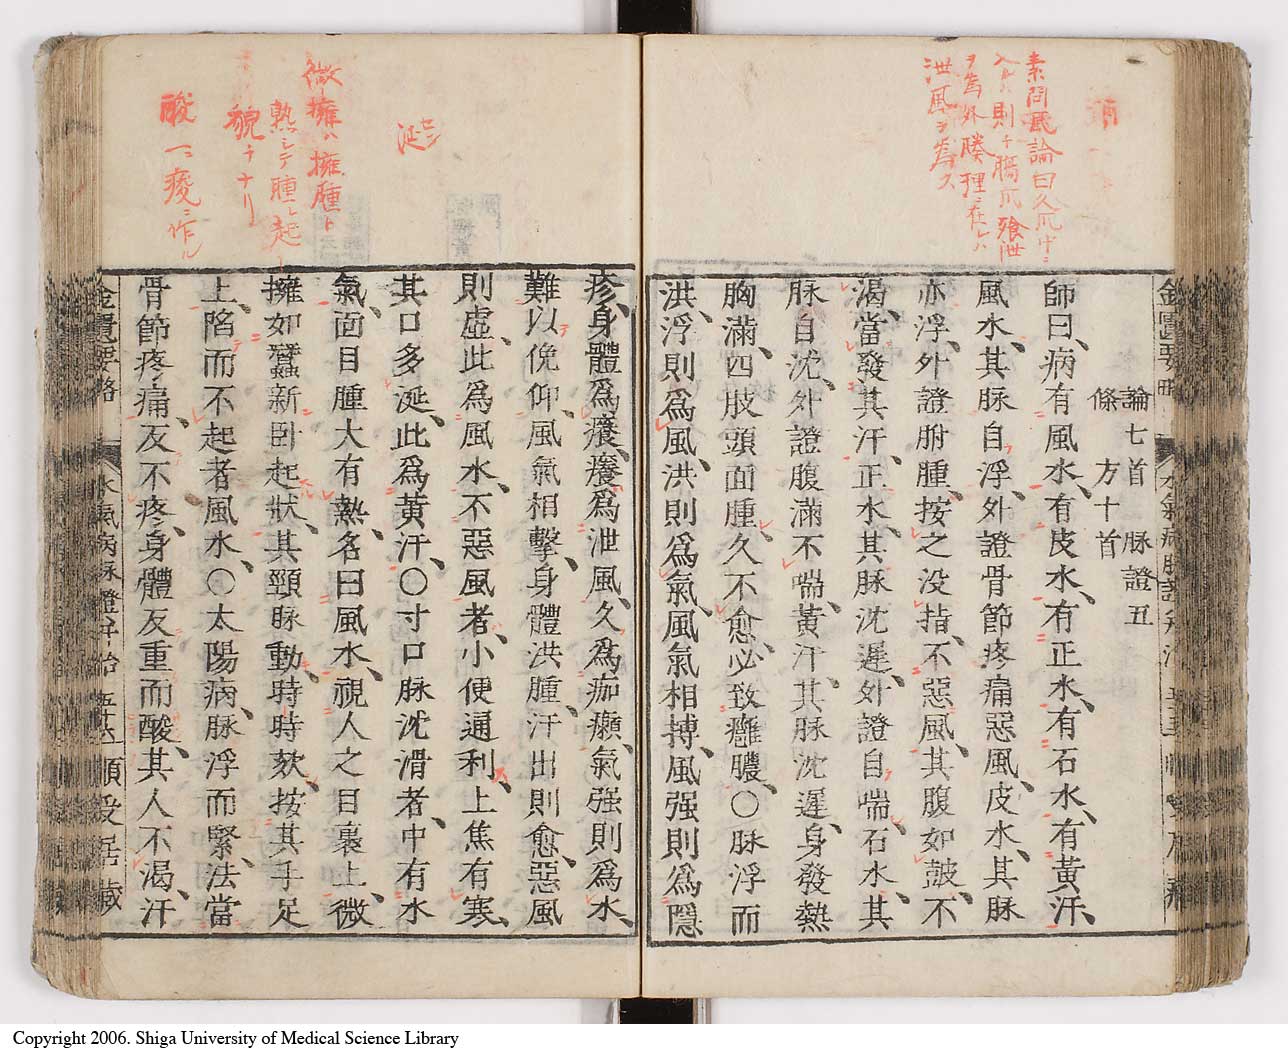 素問風論曰久爪中ニ
入ルハ則チ腸爪飱泄
ヲ為外腠狸ニ在レハ
泄風ヲ為ス
論七首 脉證五
條 方十首
師曰、病有風水、有皮水、有正水、有石水、有黃汗、
風水、其脉自浮、外證骨節疼痛惡風、皮水、其脉
亦浮、外證胕腫、按之没指、不惡風、其腹如皷、不
渴、當發其汗、正水、其脉沈遲、外證自喘、石水、其
脉自沈、外證腹滿不喘、黃汗、其脉沈遲、身發熱
胸滿、四肢頭面腫、久不愈、必致癰膿、〇脉浮而
洪、浮則爲風、洪則爲氣、風氣相搏、風强則爲隱
疹、身體爲癢、癢爲泄風、久爲痂癩、氣强則爲水、
難以俛仰、風氣相擊、身體洪腫、汗出則愈、惡風
則虛、此爲風水、不惡風者、小便通利、上焦有寒、
其口多涎、此爲黃汗、〇寸口脉沈滑者、中有水
氣、面目腫大有熱、名曰風水、視人之目裏上、微
擁如蠶新卧起狀、其頸脉動、時時欬、按其手足
上、陷而不起者風水、〇太陽病、脉浮而緊、法當
骨節疼痛、反不疼、身體反重而酸、其人不渴、汗
金匱要略 水氣病脉證并治 順受居藏
涎
微擁ハ擁腫ト
熱シテ腫レ起ル
貌チナリ
酸一ニ痠ニ作ル
Copyright 2006. Shiga University of Medical Science Library